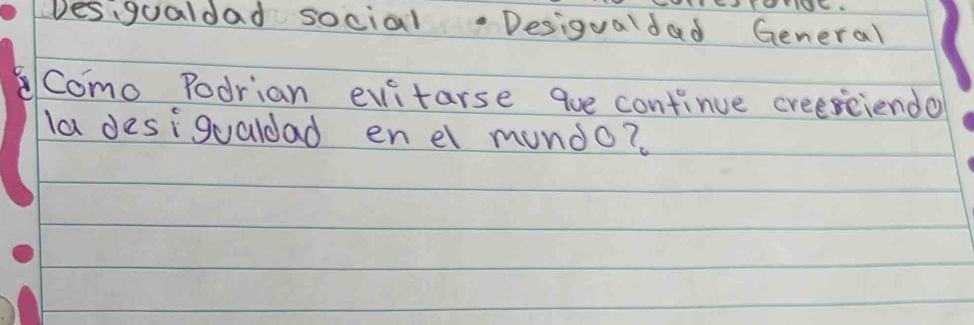 Desigualdad social • Desigualdad General
¿Cómo Podrian evitarse que continue creesciendo
la desigualdad en el mundo?